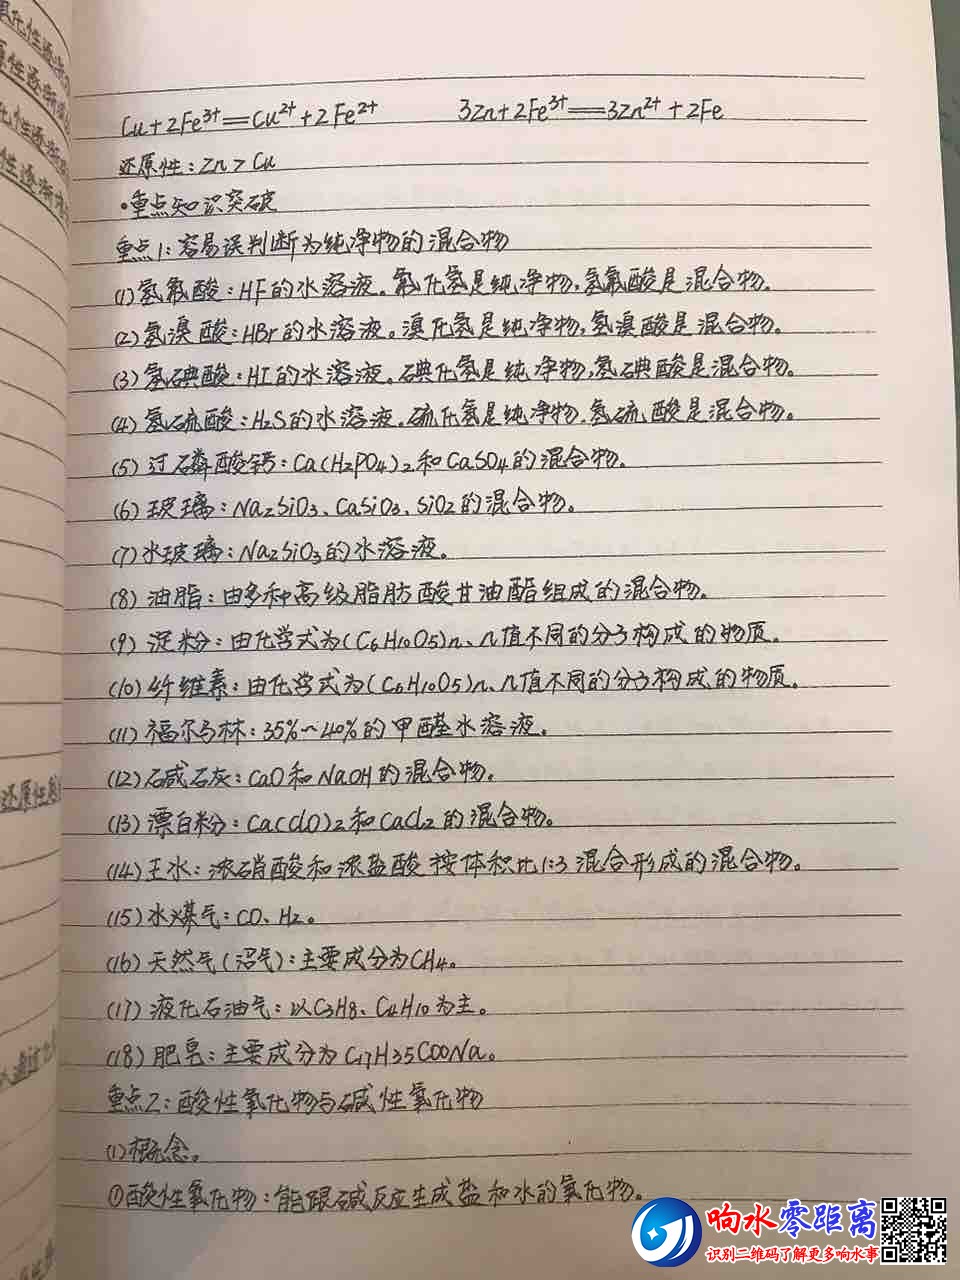 Cu+2Fe³⁺=Cu²⁺+2Fe²⁺ 3Zn+2Fe³⁺=3Zn²⁺+2Fe
还原性:Zn>Cu
•重点知识突破
重点1:容易误判断为纯净物的混合物
(1)氢氟酸:HF的水溶液。氟化氢是纯净物,氢氟酸是混合物。
(2)氢溴酸:HBr的水溶液。溴化氢是纯净物,氢溴酸是混合物。
(3)氢碘酸:HI的水溶液。碘化氢是纯净物,氢碘酸是混合物。
(4)氢硫酸:H₂S的水溶液。硫化氢是纯净物,氢硫酸是混合物。
(5)过磷酸钙:Ca(H₂PO₄)₂和CaSO₄的混合物。
(6)玻璃:Na₂SiO₃、CaSiO₃、SiO₂的混合物。
(7)水玻璃:Na₂SiO₃的水溶液。
(8)油脂:由多种高级脂肪酸甘油酯组成的混合物。
(9)淀粉:由化学式为(C₆H₁₀O₅)n、n值不同的分子构成的物质。
(10)纤维素:由化学式为(C₆H₁₀O₅)n、n值不同的分子构成的物质。
(11)福尔马林:35%~40%的甲醛水溶液。
(12)碱石灰:CaO和NaOH的混合物。
(13)漂白粉:Ca(ClO)₂和CaCl₂的混合物。
(14)王水:浓硝酸和浓盐酸按体积比1:3混合形成的混合物。
(15)水煤气:CO、H₂。
(16)天然气(沼气):主要成分为CH₄。
(17)液化石油气:以C₃H₈、C₄H₁₀为主。
(18)肥皂:主要成分为C₁₇H₃₅COONa。
重点2:酸性氧化物与碱性氧化物
(1)概念。
①酸性氧化物:能跟碱反应生成盐和水的氧化物。
响水零距离
识别二维码了解更多响水事